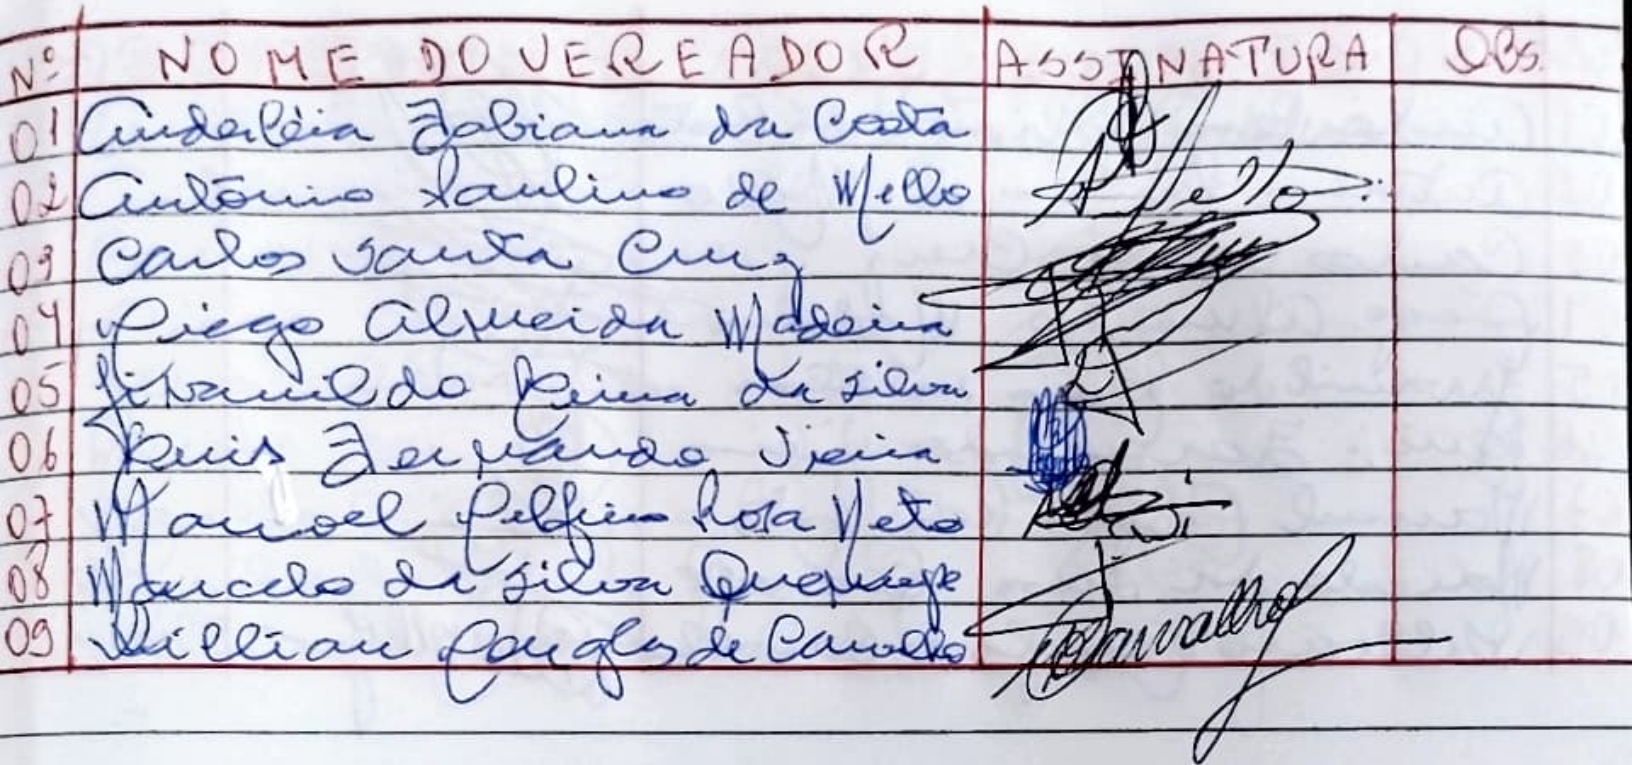 Nº NOME DO VEREADOR ASSINATURA OBS.
01 Anderléia Fabiana da Costa
02 Antônio Paulino de Mello AMello
03 Carlos Santa Cruz
04 Diego Almeida Madeira
05 Jivanildo Lima da Silva
06 Luis Fernando Vieira
07 Manoel Delfino Rosa Neto
08 Marcelo da Silva
09 Willian Douglas de Carvalho Carvalho